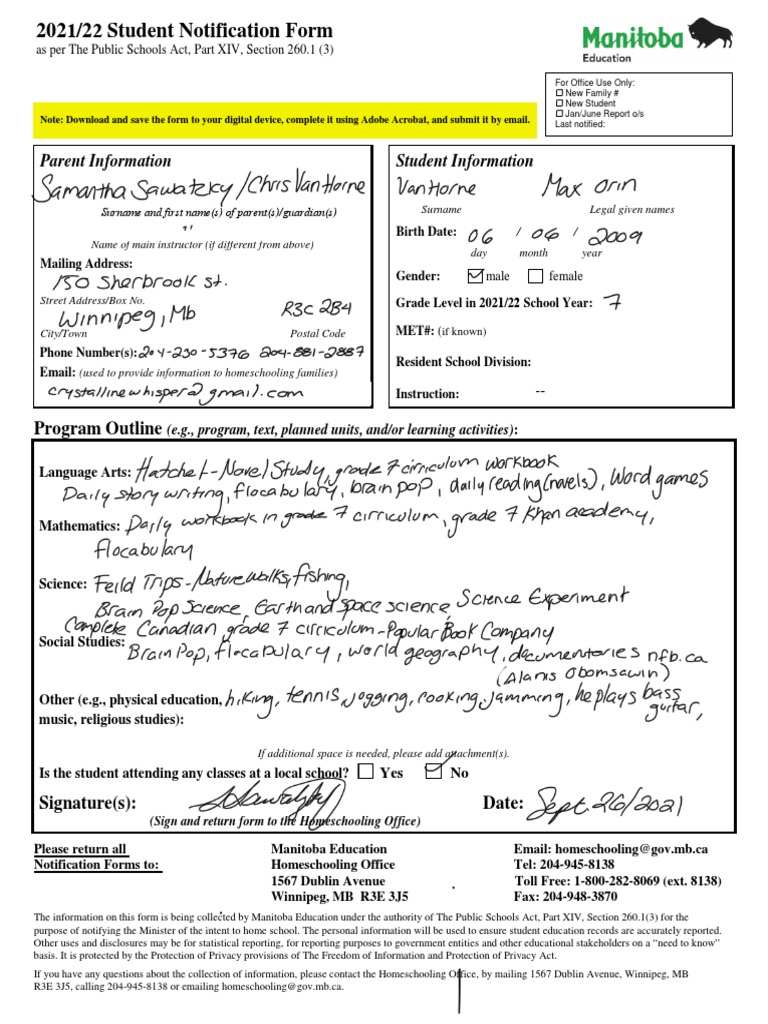 2021/22 Student Notification Form
as per The Public Schools Act, Part XIV, Section 260.1 (3)
Manitoba
Education
For Office Use Only:
New Family #
New Student
Jan/June Report o/s
Last notified:
Note: Download and save the form to your digital device, complete it using Adobe Acrobat, and submit it by email.
Parent Information
Samantha Sawatzky/Chris VanHorne
Surname and first name(s) of parent(s)/guardian(s)
Name of main instructor (if different from above)
Mailing Address:
150 Sherbrook st.
Street Address/Box No.
Winnipeg, Mb R3C 2B4
City/Town Postal Code
Phone Number(s): 204-230-5376 204-881-2887
Email: (used to provide information to homeschooling families)
crystallinewhisper@gmail.com
Student Information
VanHorne Max Orin
Surname Legal given names
Birth Date: 06 / 06 / 2009
day month year
Gender: male female
Grade Level in 2021/22 School Year: 7
MET#: (if known)
Resident School Division:
Instruction: --
Program Outline (e.g., program, text, planned units, and/or learning activities):
Language Arts: Hatchet-Novel Study, grade 7 cirriculum workbook
Daily story writing, flocabulary, brain pop, daily reading(novels), Word games
Mathematics: Daily workbook in grade 7 cirriculum, grade 7 Khan academy,
flocabulary
Science: Feild Trips-Nature walks, fishing,
Brain Pop Science, Earth and space science, Science Experiment
Complete Canadian grade 7 cirriculum-Popular Book Company
Social Studies: Brain Pop, flocabulary, world geography, documentories nfb.ca
(Alanis Obomsawin)
Other (e.g., physical education, hiking, tennis, jogging, cooking, jamming, he plays bass
music, religious studies): guitar,
If additional space is needed, please add attachment(s).
Is the student attending any classes at a local school? Yes No
Signature(s): Date: Sept. 26/2021
(Sign and return form to the Homeschooling Office)
Please return all
Notification Forms to:
Manitoba Education
Homeschooling Office
1567 Dublin Avenue
Winnipeg, MB R3E 3J5
Email: homeschooling@gov.mb.ca
Tel: 204-945-8138
Toll Free: 1-800-282-8069 (ext. 8138)
Fax: 204-948-3870
The information on this form is being collected by Manitoba Education under the authority of The Public Schools Act, Part XIV, Section 260.1(3) for the
purpose of notifying the Minister of the intent to home school. The personal information will be used to ensure student education records are accurately reported.
Other uses and disclosures may be for statistical reporting, for reporting purposes to government entities and other educational stakeholders on a “need to know”
basis. It is protected by the Protection of Privacy provisions of The Freedom of Information and Protection of Privacy Act.
If you have any questions about the collection of information, please contact the Homeschooling Office, by mailing 1567 Dublin Avenue, Winnipeg, MB
R3E 3J5, calling 204-945-8138 or emailing homeschooling@gov.mb.ca.